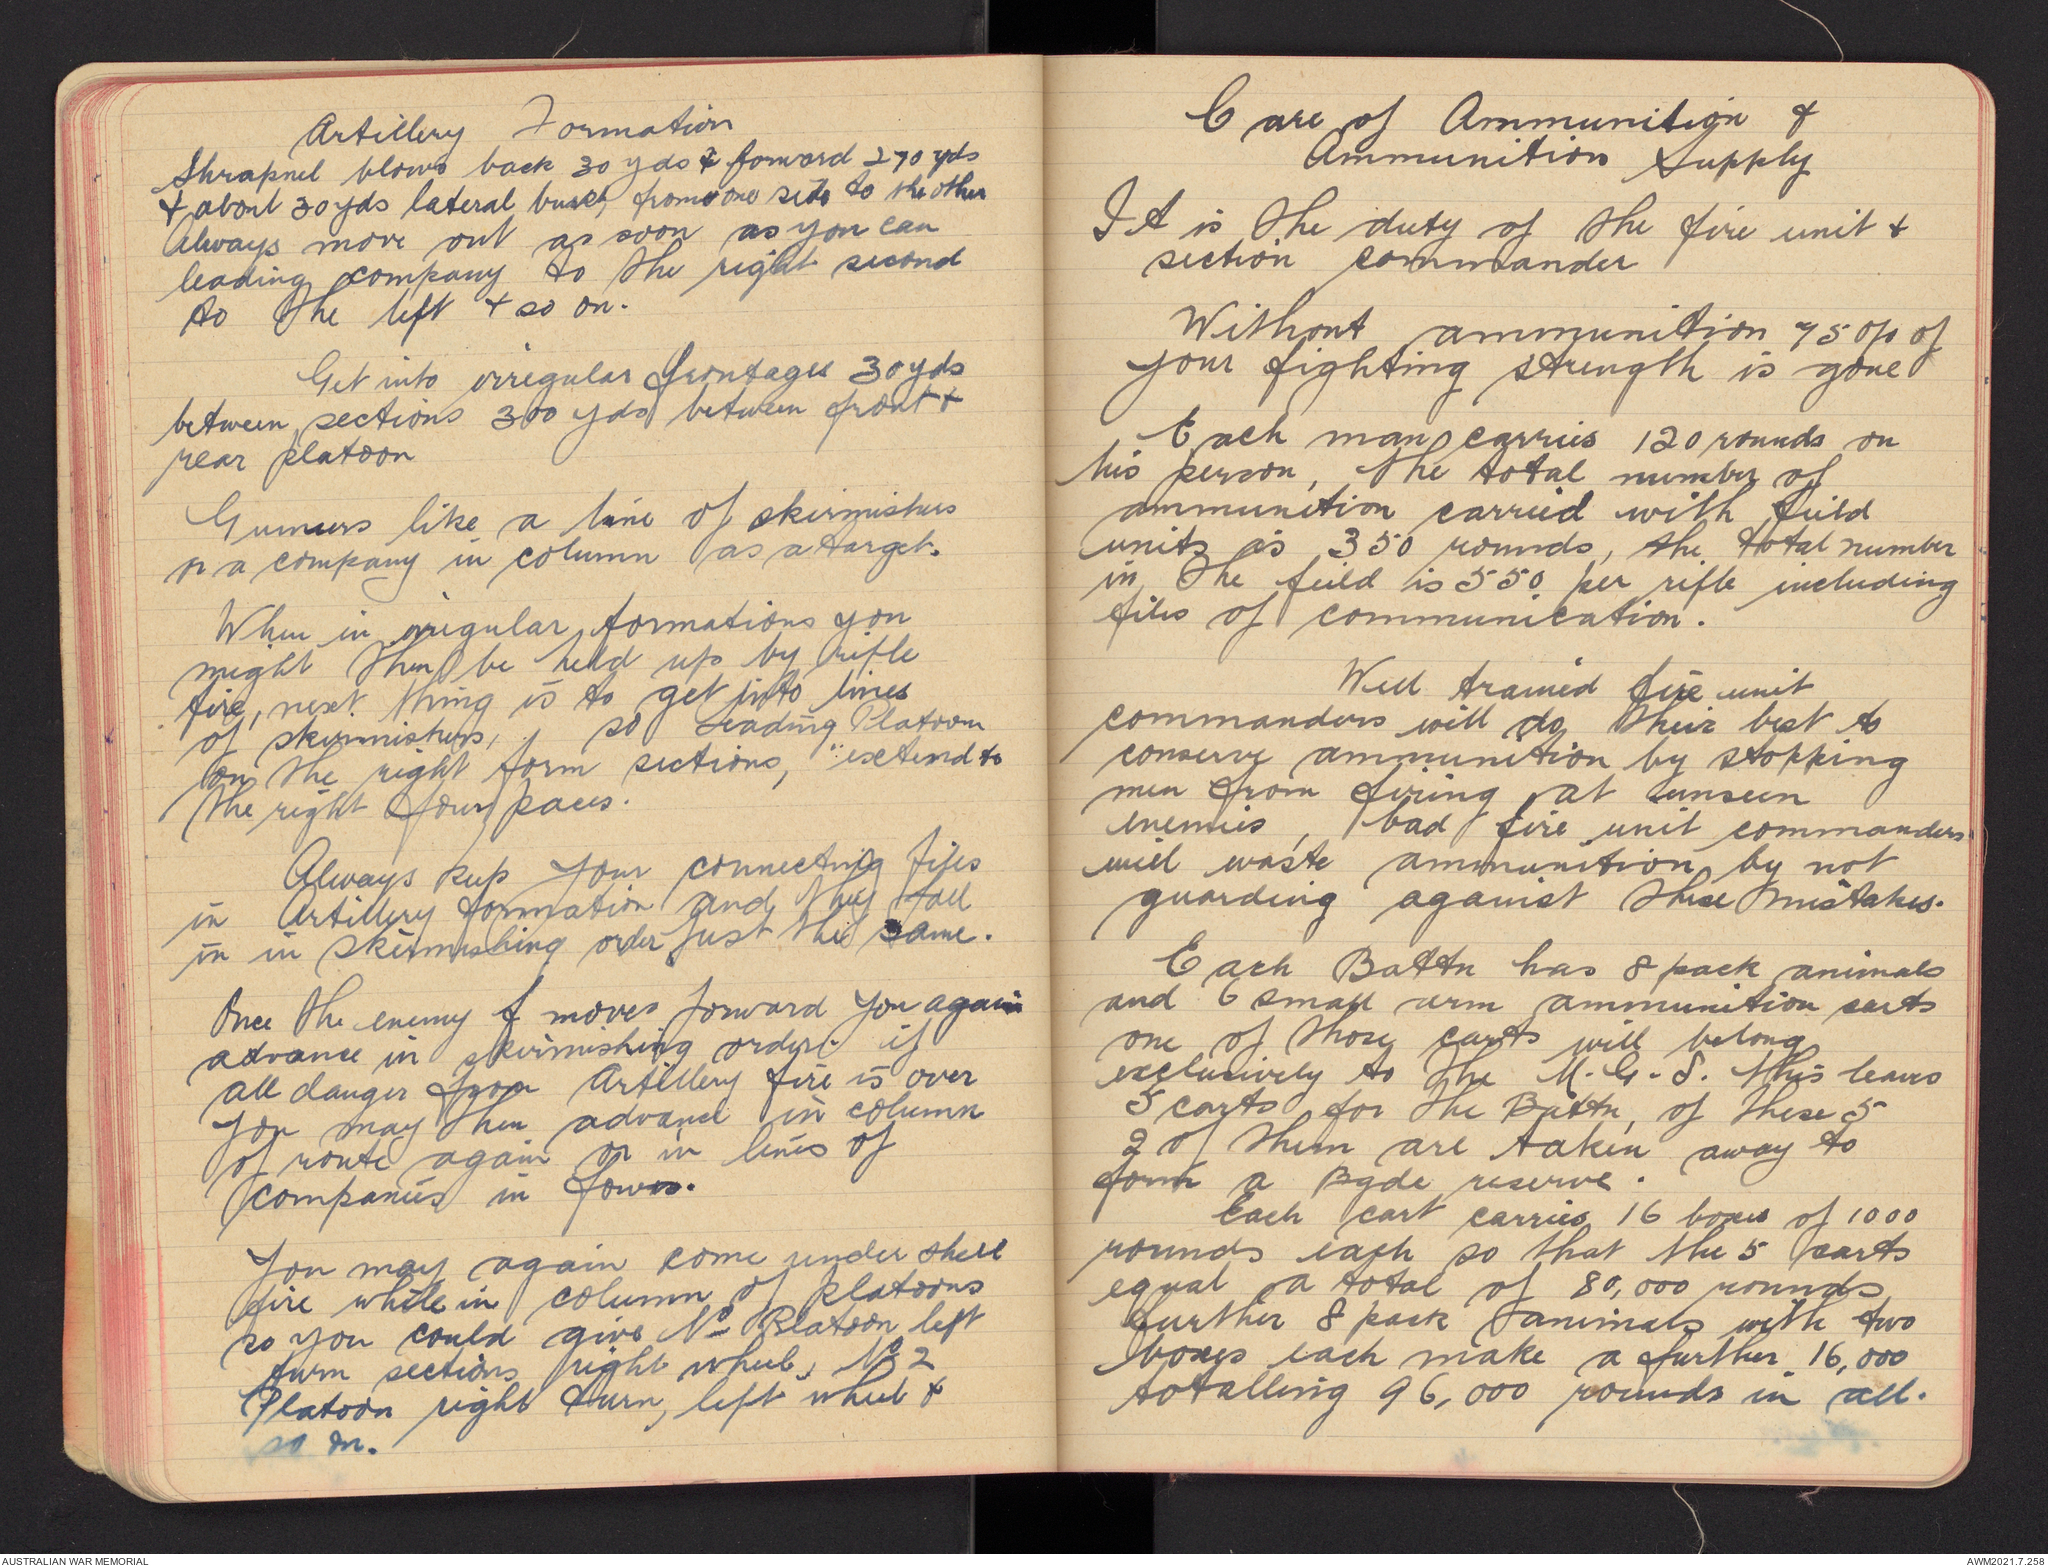 Artillery Formation
Shrapnel blows back 30 yds & forward 270 yds
& about 30 yds lateral burst, from one side to the other
Always move out as soon as you can
leading company to the right second
to the left & so on.
Get into irregular frontages 30 yds
between sections 300 yds between front &
rear platoon
Gunners like a line of skirmishers
or a company in column as a target.
When in irregular formations you
might then be held up by rifle
fire, next thing is to get into lines
of skirmishers, so leading Platoon
on the right form sections, extend to
the right four paces.
Always keep your connecting files
in Artillery formation and they fall
in in skirmishing order just the same.
Once the enemy moves forward you again
advance in skirmishing order. if
all danger from Artillery fire is over
you may then advance in column
of route again or in lines of
companies in fours.
You may again come under shell
fire while in column of platoons
so you could give No Platoon left
turn sections right wheel, No 2
Platoon right turn, left wheel &
so on.
Care of Ammunition &
Ammunition Supply
It is the duty of the fire unit &
section commander
Without ammunition 75 o/o of
your fighting strength is gone
Each man carries 120 rounds on
his person, the total number of
ammunition carried with feild
units is 350 rounds, the total number
in the feild is 550 per rifle including
files of communication.
Well trained fire unit
commanders will do their best to
conserve ammunition by stopping
men from firing at unseen
enemies, bad fire unit commanders
will waste ammunition by not
guarding against these mistakes.
Each Battn has 8 pack animals
and 6 small arm ammunition carts
one of those carts will belong
exclusively to the M.G.S. this leaves
5 carts for the Battn, of these 5
2 of them are taken away to
form a Bgde reserve.
Each cart carries 16 boxes of 1000
rounds each so that the 5 carts
equal a total of 80,000 rounds
further 8 pack animals with two
boxes each make a further 16,000
totalling 96,000 rounds in all.
AUSTRALIAN WAR MEMORIAL
AWM2021.7.258